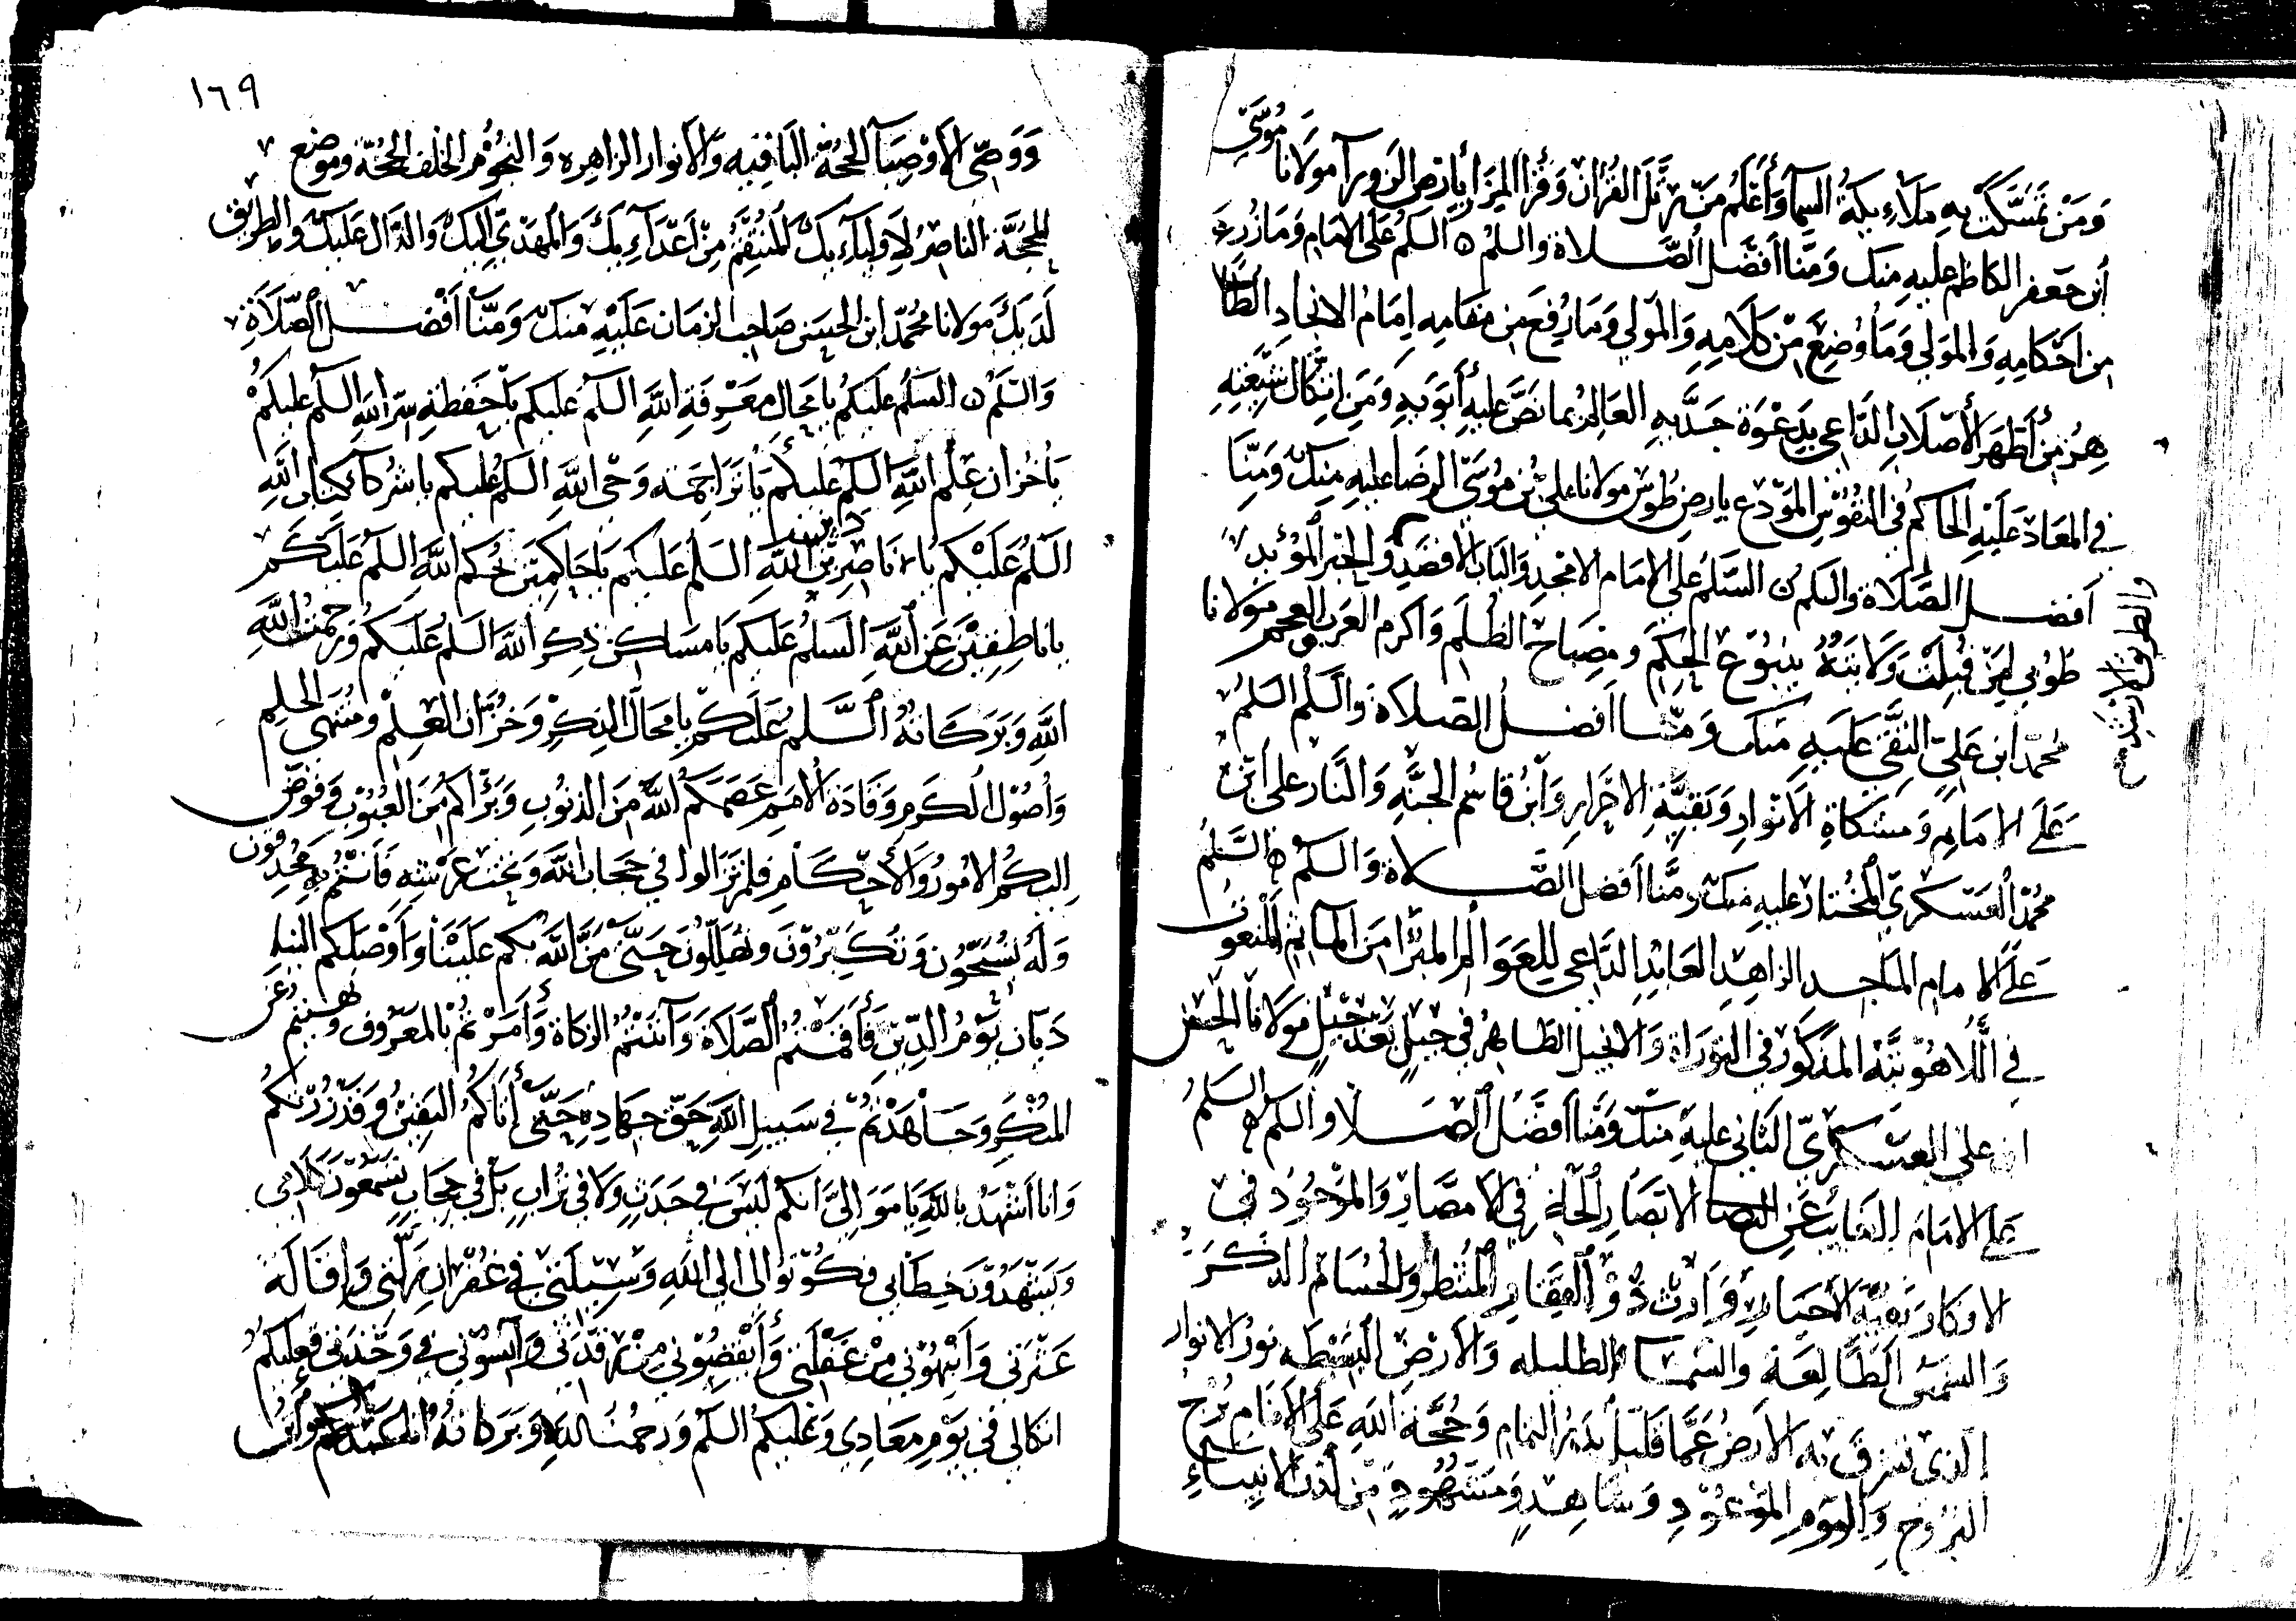 وَمَنْ تَمَسَّكَتْ بِهِ مَلَاءِيكَةُ السِمَآ وَأَعْلَمُ مَنْ رَتَّلَ القُرْآن وَقَرَأَ بِأَرْضِ الزورآ مولانا مُوسَى
ابن جعفر الكاظم عليهِ منك ومَنَّا أفضَل الصَّلاة والسلمُ ٥ السلمُ على الامَام وَمَا
من احْكامِهِ وَالمَوْلي وَمَا وُضِعَ مِنْ كَلَامِهِ وَالمَوْلي وَمَا رُفِعَ مِن مَقَامِهِ إمَامُ الانجاد
مِنْ أَظْهَرِ الأَصْلَابِ الدَّاعِي بِدَعْوَة جَدَّيهِ العَالِمْ بما نَصَّ عليهِ أَبَوَيهِ وَمَنِ شيعَتِهِ
في المعَاد عَلَيْهِ الحَاكم في النفُوْس المَوّدع بارض طُوس مولانا على بْن مُوسَى الرضَا عليهِ مِنكَ وَمِنَّا
أفضل الصَّلَاة والسلم ٥ السَّلمُ على الإمَام الامْجد وَالبَاب الاقصَدِ وَالحبر المؤيد
طُوبى لِمَنْ قُبِلَتْ وَلَايَتَهُ يَنبُوْع الحِكَم ومِصبَاح الظُلَم وَأكرم العَرَب والعجم مَولانا
محمّد ابن عَليّ التقي عَليهِ منك وَمنَّا أفضل الصلاة وَالسّلم السَلمُ
عَلَى الامَامِ وَمشكَاةِ الأَنْوارِ وَبَقِيَّةِ الاخْرَارِ وَابْنُ قَاسُم الجَنَّهِ وَالنَّار على ابنْ
محمّد العَسْكري المخُتار عليهِ منكَ ومنَّا أفضل الصَّلاة وَالسلمُ ٥ السَّلمُ
عَلَى الامام المَاجد الزاهِدِ العَابِدِ الدَّاعي المبرّا مِنَ المآثِم المنْعُوت
في اللّاهُوْتيَّهْ المذكَور في التوَراة والانجيل الظاهِرُ في جيلٍ بَعْدَ جيْلٍ مَولانا الحَسَن
ابن علي العَسْكريّ الثاني عليهِ منكَ ومَنَّا افضَل الصَلاة والسلم ٥ السَلمُ
على الامَام الغايب عَن الابْصَار في الأمصَارِ وَالموْجُود في
الأفكَار بَقيَّة الأخيَارِ وَارث ذُو الفِقَارِ المُنتظر وَالحُسَام الذكَر
وَالشمسْ الطَّالِعَة والسَمآ الظليله وَالأرْضْ البَسْيطَه نورُ الانوار
الّذي تشرقْ بهِ الارضْ عَمَّا قَليل بَدرُ التمام وَحُجَّة الله عَلى الأنَام بُرْج
البُرُوج وَاليَوم المَوْعُوْدِ وَشَاهِدٍ وَمَشهُودٍ مِن لدُن الانبياءِ
١٦٩
وَوَصيَّ الأَوْصِيَآ الحجُة البَاقِيه وَالأنوار الزاهِرِه وَالنجُوُم الخلف الحُجّة وموضع
المحَجَّة الناصُر لِأوليَآءِيكَ المُنتقِمْ مِنْ أعْدَآءِيك وَالمهْدَيْ إليكَ وَالدَّال عَليك وَالطريق
لَدَيكَ مَولانا محُمَّد ابن الحسَن صَاحِب الزمَان عَلَيْهِ منكَ وَمنَّا أَفْضَل الصّلَاةِ
وَالسَّلمُ ٥ السَلمُ عَليَكُم يا محَال مَعْرفَةِ اللهِ السَلمُ عَليكم يا حَفَظةِ سِرّ الله السَلمُ عليكُمْ
يَا خُزان عِلْم اللهِ السَلمُ عَليكُم يَا تَرَاجِمَة وَحْي اللهِ السَلمُ عَليكم يا شُرَكآء كتَاب اللهِ
السَلمُ عَلَيْكُم يَا نَاصِريْن دِين اللهِ السَلمُ عَليكم يَا حَاكِميَن بحُكم اللهِ السَلمُ عَليَكُم
يا ناطِقِيْن عَن اللهَ السَلمُ عَليكم يَا مسَاكِن ذِكر الله السَلمُ عَليكُم وَرحمتُ اللهِ
اللهِ وَبَرَكَاتهُ السَّلمُ عَلَيكُمْ يا محَال الذِكرْ وَخُزَّان العِلم ومنتهي الحلم
وَأُصُوْل الكَرم وَقادَة الأمَم عَصَمَكُم اللهُ مِنَ الذنوُب وَبرَّاكُم مُنَ العيُوب وَفوّض
اليكُم الأمُور وَالأحكَام فلم تزَالوا في حجَاب الله وَتحتَ عَرْشِهِ فَأَنتُم بِهِ محُدقون
وَلهُ تُسَبّحُون وَتُكَبِّرُوْن وتُهَلِّلُون حَتَّى مَنَّ اللهُ بكم عَلَيْنا وَأوْصَلكم الينا
دَيّان يَوْمُ الدِّينِ فَأَقَمْتُم الصَّلَاةَ وَآتيْتُمُ الزكاة وَأمَرْتُم بالمعرُوف وَنهيتم عَن
المُنْكَر وَجَاهَدْتُمُ في سَبِيل اللهِ حَقّ جهادِهِ حَتَّى أتاكُم اليَقينْ وَقد زُرْتكُم
وَانا أشْهَدُ باللهِ يَا مَوَاليَّ أنكم ليسَ في جَدَثٍ ولا في تُرابٍ بَل في حجَابٍ تَسْمَعُوْن كَلَامِي
وَتَشْهَدُوْن خِطَابي فكوُنوا لي الى اللهِ وَسيْلَتي في غُفْران زَلّتي وَإقالَة
عَثرَتي وَانْبِهُوْني مِنْ غَفْلَتي وَأيْقِضُوْني مِنْ رَقْدَتي وَآنسُوْني في وَحْدَتي فعليكم
اتكالي في يَوْم مَعَادِي وَعَليكُم السَلمُ وَرحمتُ اللهِ وَبَرَكاتُهُ
والطريق المستقيم